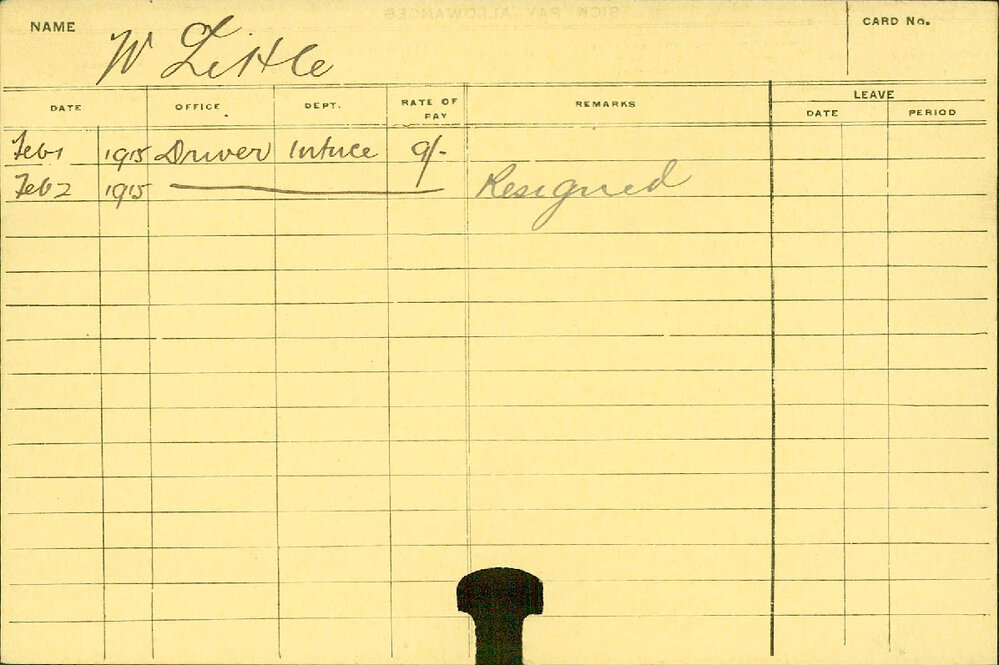 SICK PAY ALLOWANCES
NAME W Little CARD No.
DATE OFFICE DEPT. RATE OF PAY REMARKS LEAVE
DATE PERIOD
Feb 1 1915 Driver Intnce 9/-
Feb 2 1915 Resigned